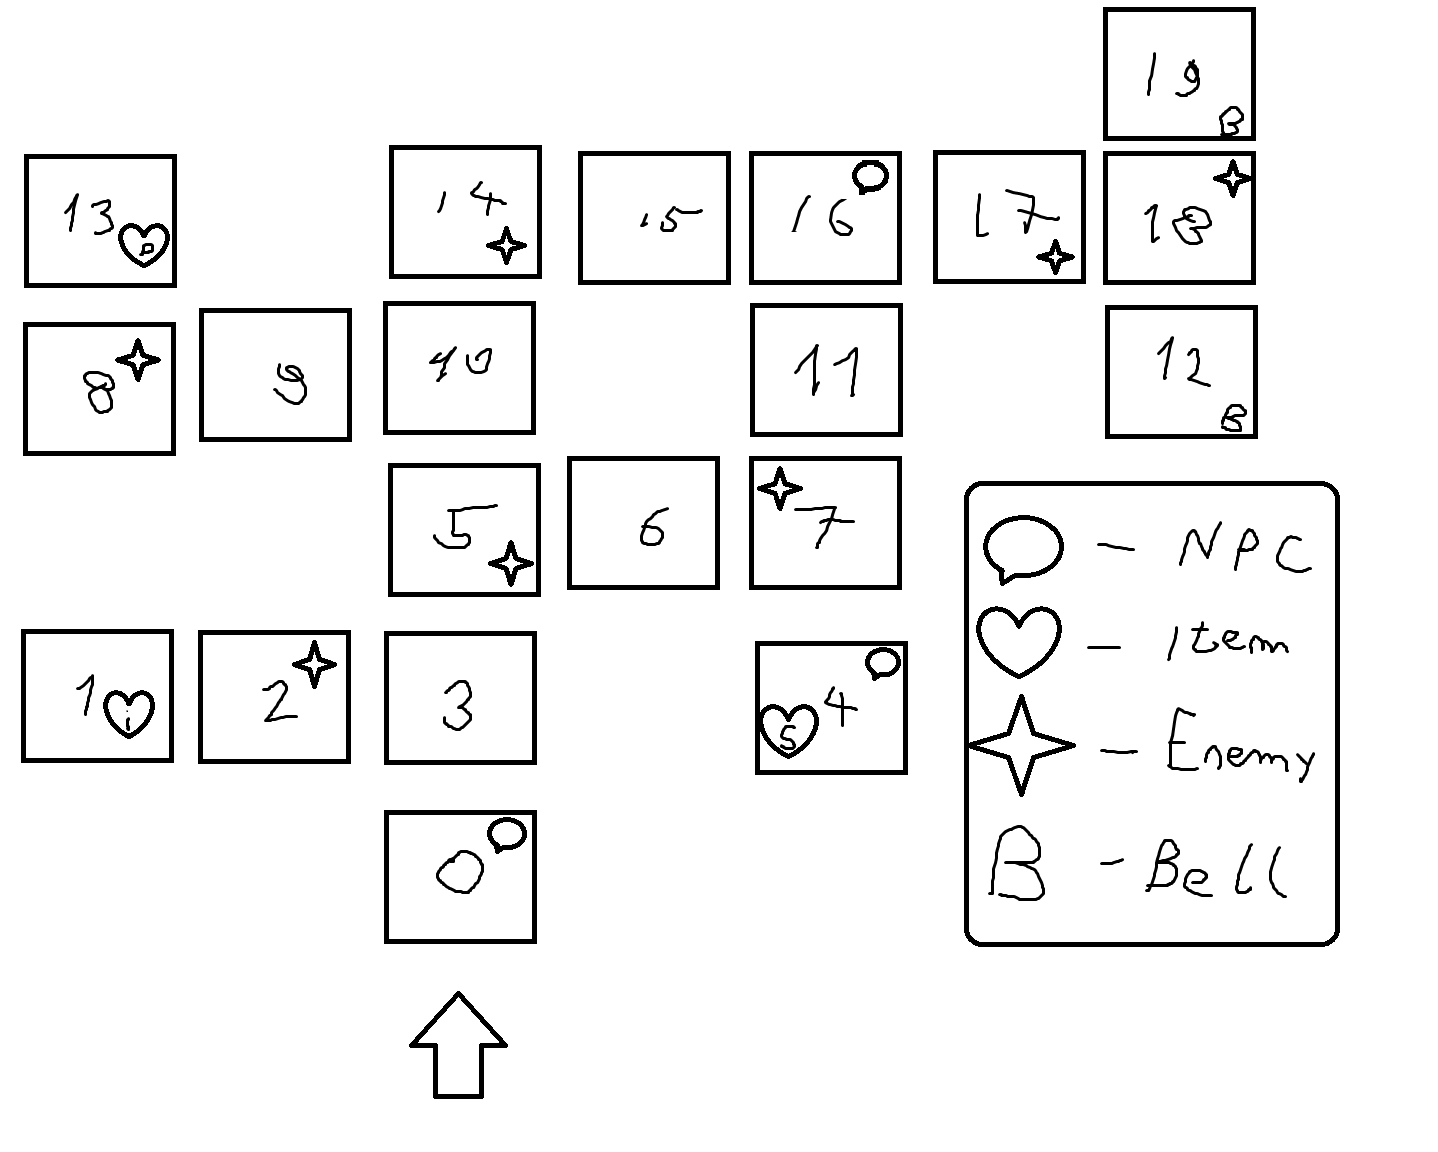 19
B
13
P
14
15
16
17
18
8
9
10
11
12
B
5
6
7
1
i
2
3
4
S
0
- NPC
- Item
- Enemy
B - Bell